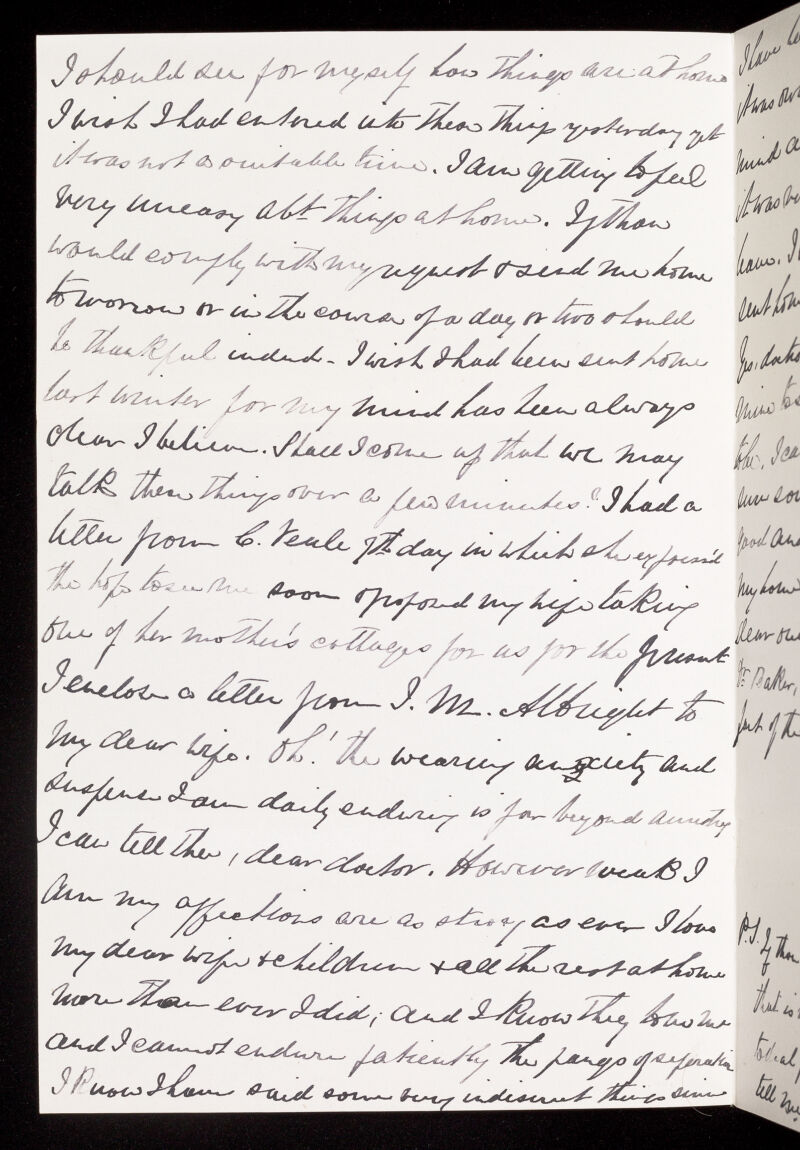 I should see for myself how things are at home
I wish I had entered into these things yesterday yet
it was not a suitable time. I am getting to feel
very uneasy abt things at home. If thou
would comply with my request & send me home
tomorrow or in the course of a day or two should
be thankful indeed - I wish I had been sent home
last winter for my mind has been always
clear I believe. Shall I come up that we may
talk these things over a few minutes? I had a
letter from C. Veale 7th day in which she expressed
the hope to see me soon & proposed my wife taking
one of her mother's cottages for us for the present
I enclose a letter from I. M. Albright to
my dear wife. Oh! the wearing anxiety and
suspense I am daily enduring is far beyond
I can tell thee, dear doctor. However weak I
am my affections are as strong as ever I love
my dear wife & children & all the rest at home
more than ever I did; and I know they love me
and I cannot endure patiently the pangs of separation
I know I have said some very indiscreet things since
I have
it was
mind a
it was
leave. I
sent home
Yes, doctor
mine to
to be. I ca
sure
good and
my home
dear one
Dr Baker,
part of the
P.S. If thou
that is
to
tell me